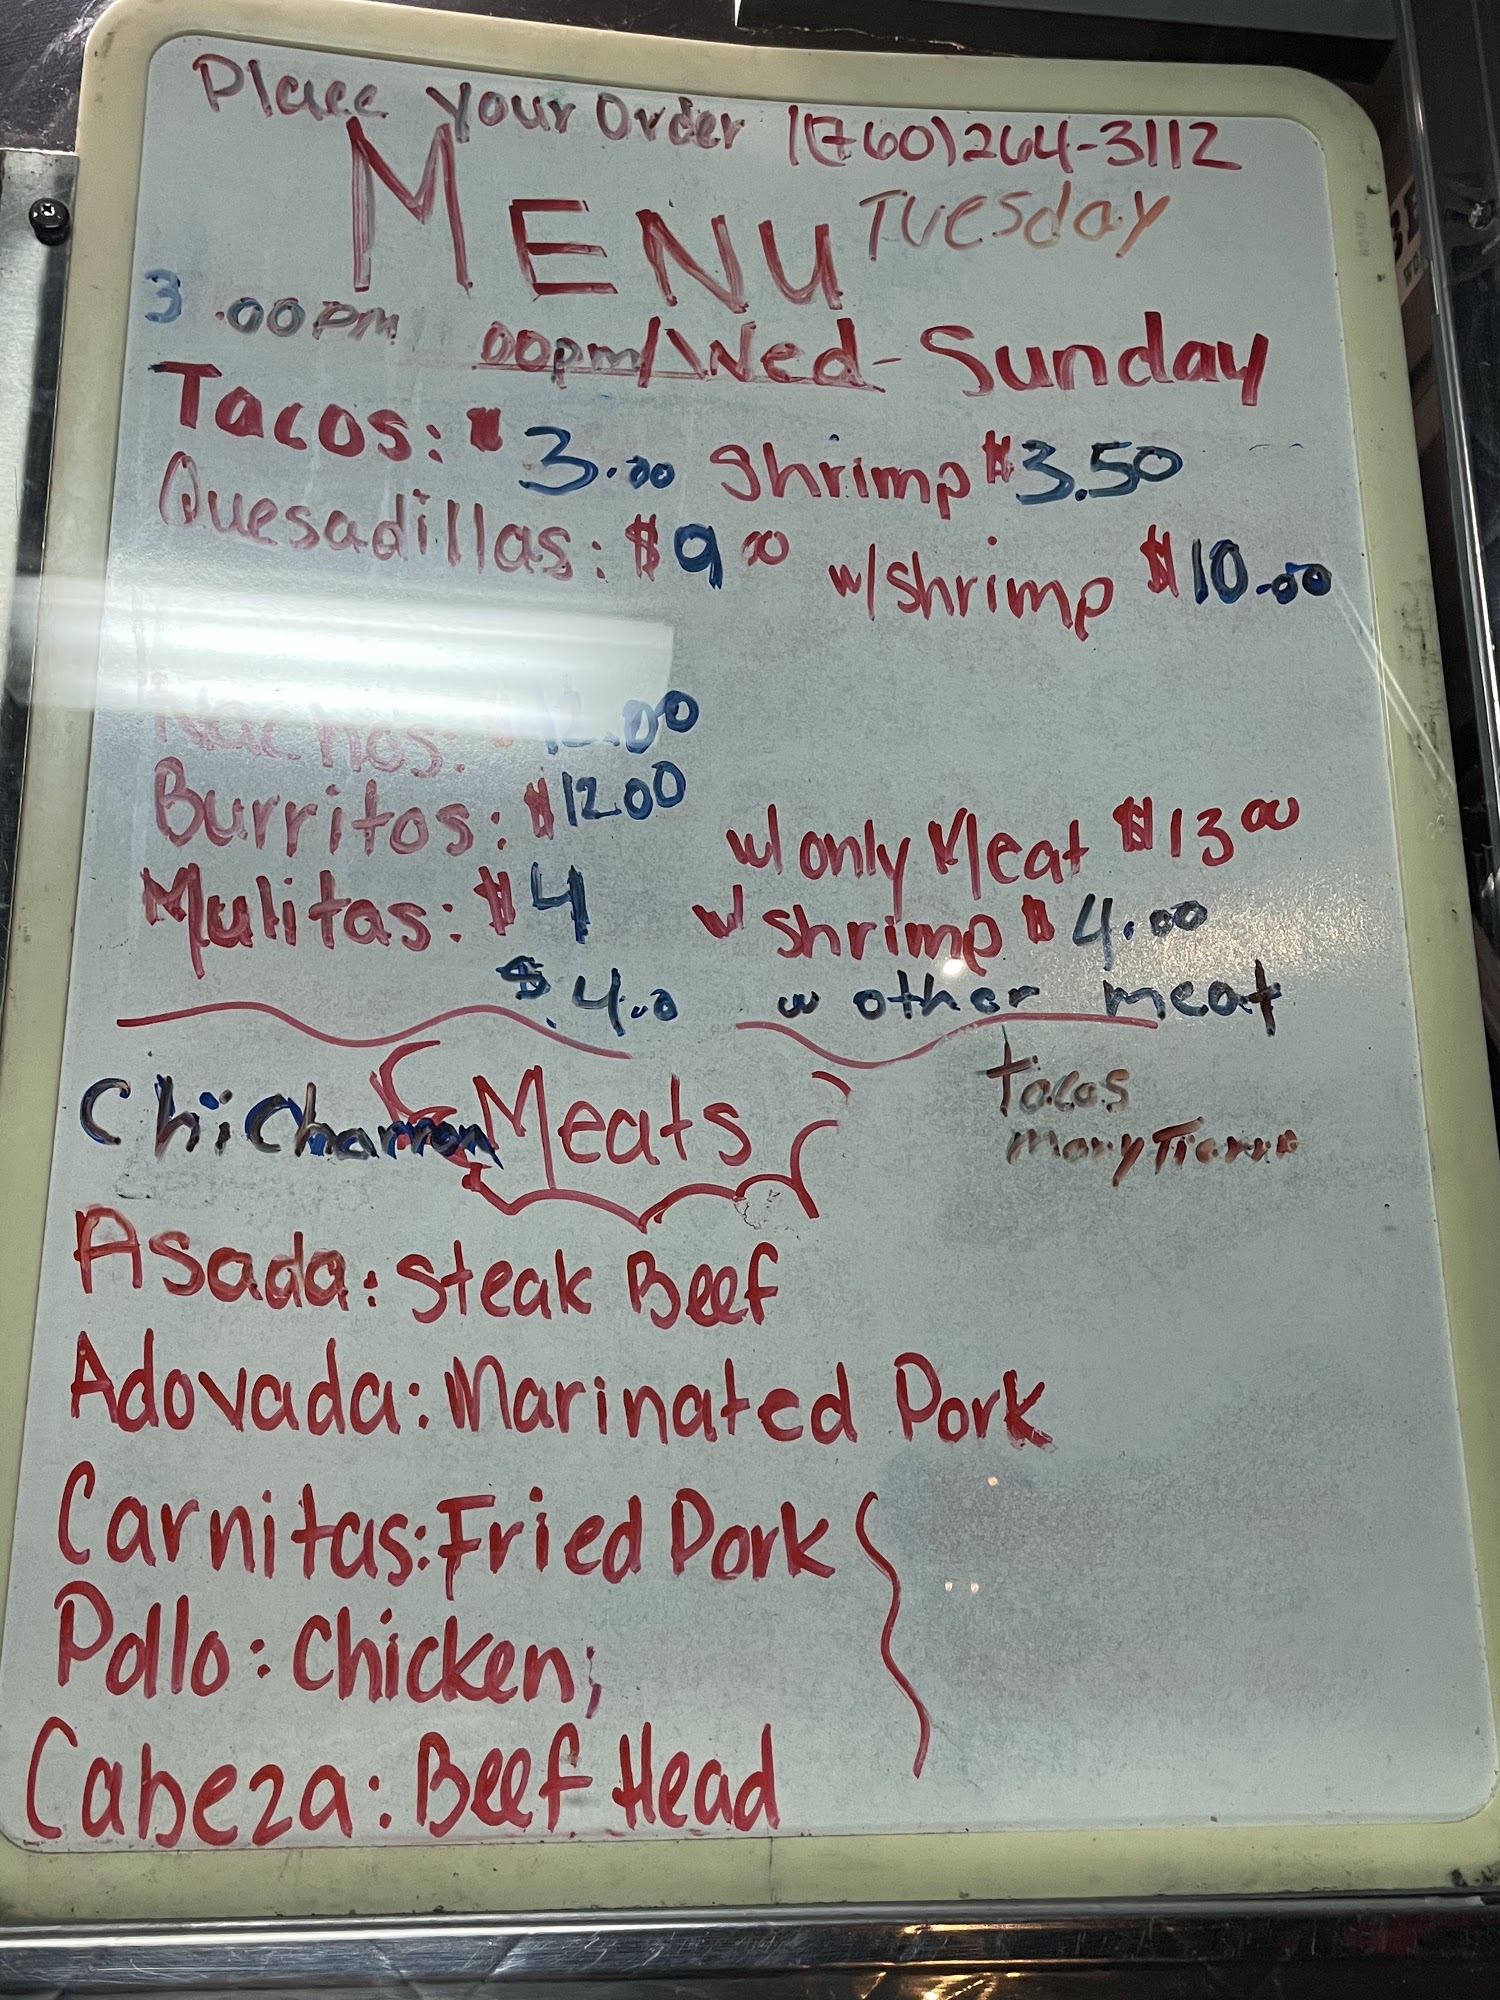 Place your Order 1(760)264-3112
MENU Tuesday
3 .00pm 00pm/Wed- Sunday
Tacos: $3.00 Shrimp $3.50
Quesadillas: $9 00 w/shrimp $10.00
Nachos: $12.00
Burritos: $1200 w/ only Meat $13 00
Mulitas: $4 w/ shrimp $4.00
$4.0 w other meat
Chicharron Meats
tacos
mary Tierra
Asada: Steak Beef
Adovada: Marinated Pork
Carnitas: Fried Pork
Pollo: Chicken;
Cabeza: Beef Head